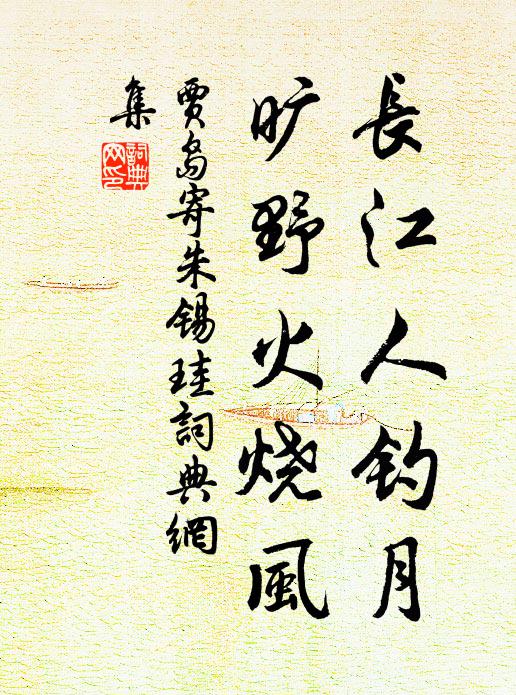 長江人钓月
旷野火烧風
賈島寄朱锡珪詞典網
集
詞典
网印